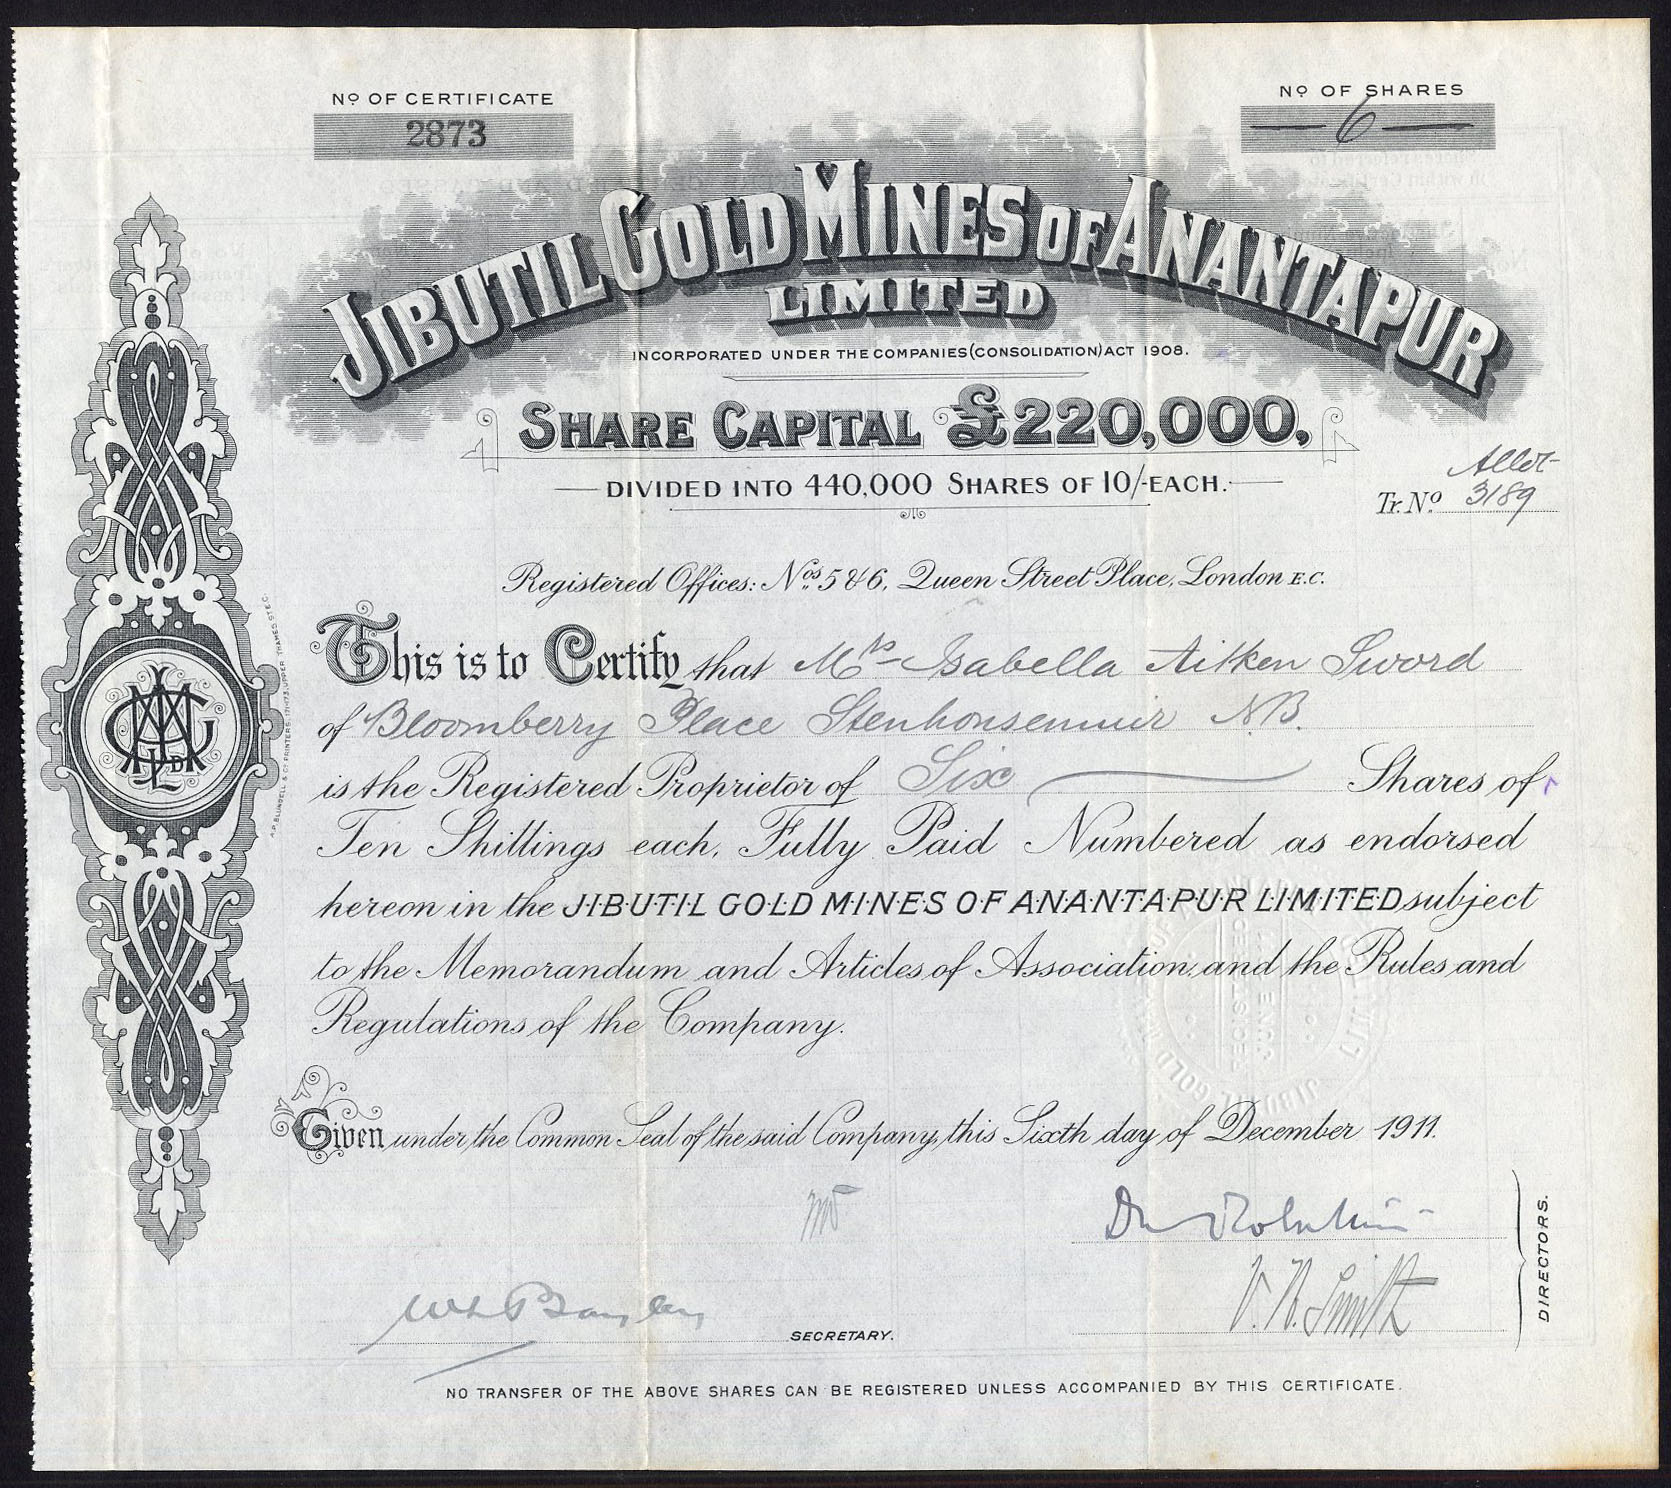 Nº OF CERTIFICATE
2873
Nº OF SHARES
6
JIBUTIL GOLD MINES OF ANANTAPUR
LIMITED
INCORPORATED UNDER THE COMPANIES (CONSOLIDATION) ACT 1908.
SHARE CAPITAL £220,000,
DIVIDED INTO 440,000 SHARES OF 10/- EACH.
Allot
Tr. Nº 3189
Registered Offices: Nos 5 & 6, Queen Street Place, London E.C.
This is to Certify that Mrs Isabella Aitken Sword
of Bloomberry Place Stenhousemuir N.B.
is the Registered Proprietor of Six Shares of
Ten Shillings each, Fully Paid Numbered as endorsed
hereon in the JIBUTIL GOLD MINES OF ANANTAPUR LIMITED subject
to the Memorandum and Articles of Association and the Rules and
Regulations of the Company.
Given under the Common Seal of the said Company, this Sixth day of December 1911.
V. N. Smith
DIRECTORS.
SECRETARY.
NO TRANSFER OF THE ABOVE SHARES CAN BE REGISTERED UNLESS ACCOMPANIED BY THIS CERTIFICATE.